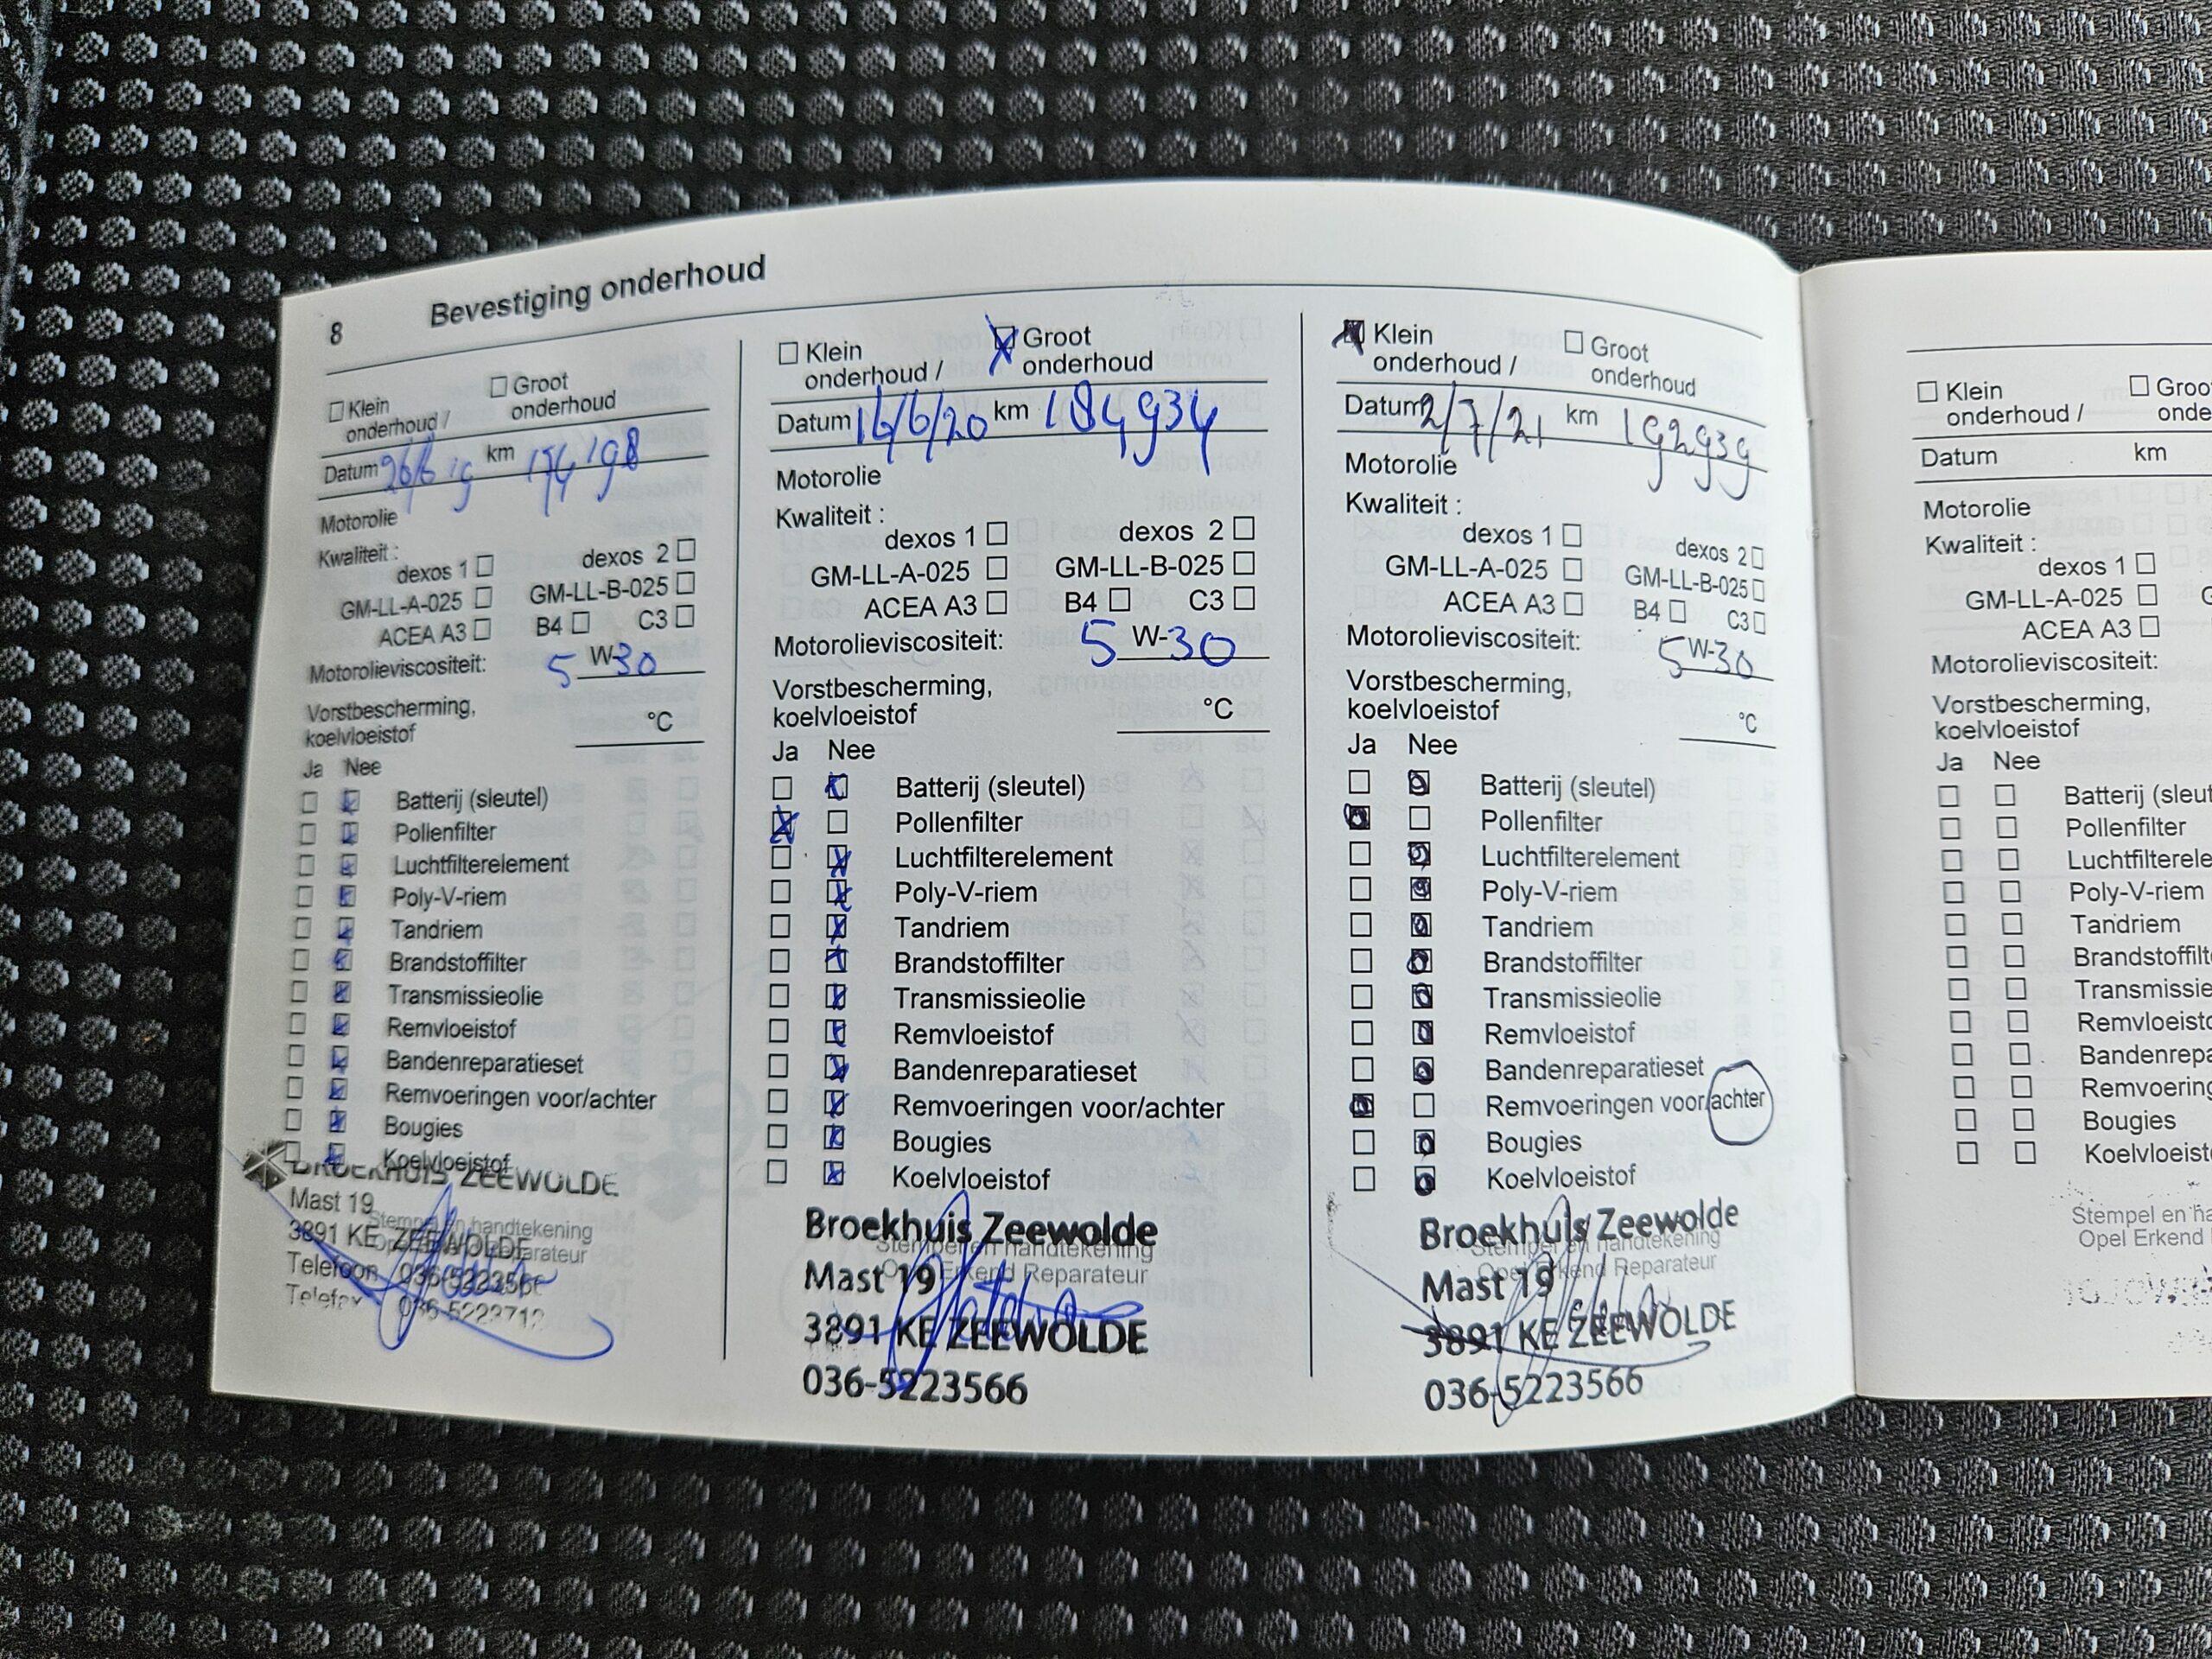 8 Bevestiging onderhoud
Klein onderhoud / Groot onderhoud
Datum 26/6 19 km 174198
Motorolie
Kwaliteit :
dexos 1 dexos 2
GM-LL-A-025 GM-LL-B-025
ACEA A3 B4 C3
Motorolieviscositeit: 5 W-30
Vorstbescherming,
koelvloeistof °C
Ja Nee
Batterij (sleutel)
Pollenfilter
Luchtfilterelement
Poly-V-riem
Tandriem
Brandstoffilter
Transmissieolie
Remvloeistof
Bandenreparatieset
Remvoeringen voor/achter
Bougies
Koelvloeistof
BROEKHUIS ZEEWOLDE
Mast 19
Stempel en handtekening
3891 KE ZEEWOLDE
Telefoon
Telefax 036-5223712
Klein onderhoud / Groot onderhoud
Datum 16/6/20 km 184934
Motorolie
Kwaliteit :
dexos 1 dexos 2
GM-LL-A-025 GM-LL-B-025
ACEA A3 B4 C3
Motorolieviscositeit: 5 W-30
Vorstbescherming,
koelvloeistof °C
Ja Nee
Batterij (sleutel)
Pollenfilter
Luchtfilterelement
Poly-V-riem
Tandriem
Brandstoffilter
Transmissieolie
Remvloeistof
Bandenreparatieset
Remvoeringen voor/achter
Bougies
Koelvloeistof
Broekhuis Zeewolde
Stempel en handtekening
Mast 19
Opel Erkend Reparateur
3891 KE ZEEWOLDE
036-5223566
Klein onderhoud / Groot onderhoud
Datum 2/7/21 km 192939
Motorolie
Kwaliteit :
dexos 1 dexos 2
GM-LL-A-025 GM-LL-B-025
ACEA A3 B4 C3
Motorolieviscositeit: 5 W-30
Vorstbescherming,
koelvloeistof °C
Ja Nee
Batterij (sleutel)
Pollenfilter
Luchtfilterelement
Poly-V-riem
Tandriem
Brandstoffilter
Transmissieolie
Remvloeistof
Bandenreparatieset
Remvoeringen voor/achter
Bougies
Koelvloeistof
Broekhuis Zeewolde
Stempel en handtekening
Mast 19
Opel Erkend Reparateur
3891 KE ZEEWOLDE
036-5223566
Klein onderhoud / Groo
onde
Datum km
Motorolie
Kwaliteit :
dexos 1
GM-LL-A-025
ACEA A3
Motorolieviscositeit:
Vorstbescherming,
koelvloeistof
Ja Nee
Batterij (sleut
Pollenfilter
Luchtfilterele
Poly-V-riem
Tandriem
Brandstoffilt
Transmissie
Remvloeisto
Bandenrepa
Remvoering
Bougies
Koelvloeist
Stempel en ha
Opel Erkend